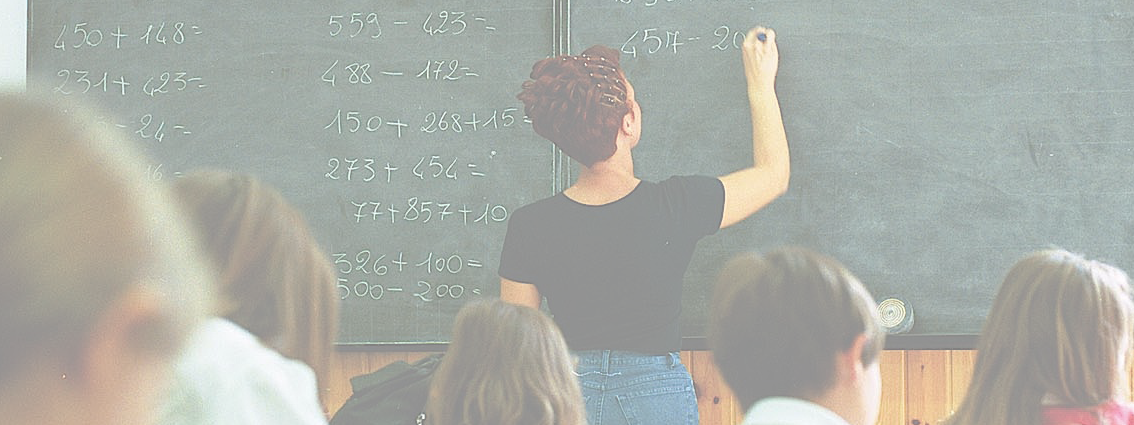 450 + 148 =
231 + 423 =
- 24 =
16 =
559 - 423 =
488 - 172 =
150 + 268 + 15 =
273 + 454 =
77 + 857 + 10
326 + 100 =
500 - 200 =
457 - 20